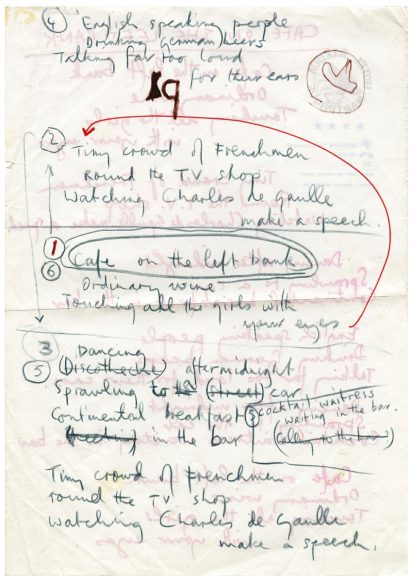 ④ English speaking people
Drinking German beers
Talking far too loud
for their ears
19
② Tiny crowd of Frenchmen
Round the T.V. shop
Watching Charles de Gaulle
make a speech.
①
⑥ Cafe on the left bank
Ordinary wine
Touching all the girls with
your eyes
3
Dancing
⑤ (Discotheche) after midnight
Sprawling to the (street) car
Continental breakfast
in the bar
⑤ cocktail waitress
waiting in the bar.
Tiny crowd of Frenchmen
round the TV shop
Watching Charles de Gaulle
make a speech.